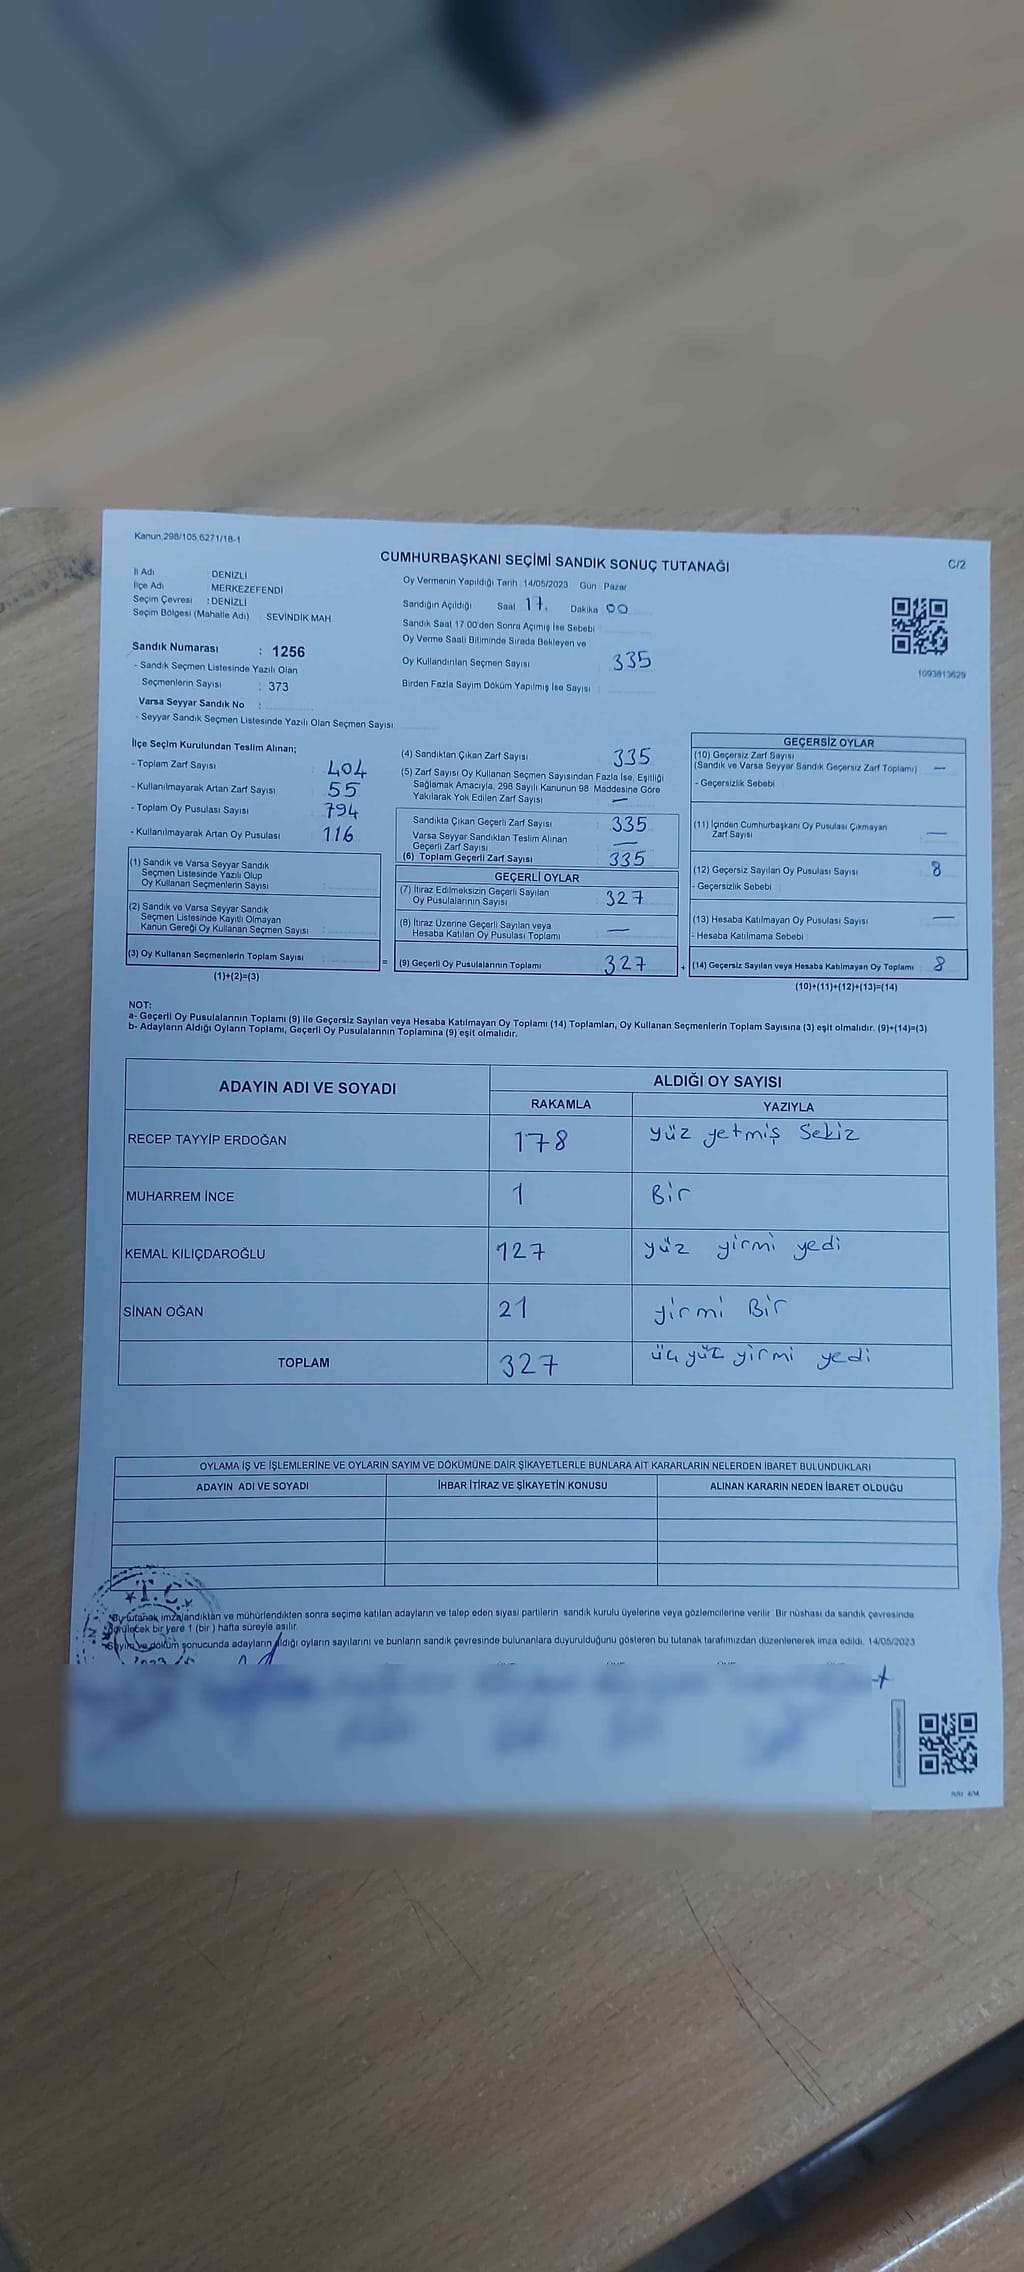 Kanun 298/105,6271/18-1
CUMHURBAŞKANI SEÇİMİ SANDIK SONUÇ TUTANAĞI
C/2
İl Adı DENİZLİ
İlçe Adı MERKEZEFENDİ
Seçim Çevresi : DENİZLİ
Seçim Bölgesi (Mahalle Adı) SEVİNDİK MAH
Oy Vermenin Yapıldığı Tarih 14/05/2023 Gün Pazar
Sandığın Açıldığı Saat 17. Dakika 00
Sandık Saat 17.00'den Sonra Açımış İse Sebebi
Oy Verme Saati Bitiminde Sırada Bekleyen ve
Oy Kullandırılan Seçmen Sayısı 335
Birden Fazla Sayım Döküm Yapılmış İse Sayısı
1093813629
Sandık Numarası : 1256
- Sandık Seçmen Listesinde Yazılı Olan
Seçmenlerin Sayısı : 373
Varsa Seyyar Sandık No :
- Seyyar Sandık Seçmen Listesinde Yazılı Olan Seçmen Sayısı
İlçe Seçim Kurulundan Teslim Alınan;
- Toplam Zarf Sayısı 404
- Kullanılmayarak Artan Zarf Sayısı 55
- Toplam Oy Pusulası Sayısı 794
- Kullanılmayarak Artan Oy Pusulası 116
(1) Sandık ve Varsa Seyyar Sandık
Seçmen Listesinde Yazılı Olup
Oy Kullanan Seçmenlerin Sayısı
(2) Sandık ve Varsa Seyyar Sandık
Seçmen Listesinde Kayıtlı Olmayan
Kanun Gereği Oy Kullanan Seçmen Sayısı
(3) Oy Kullanan Seçmenlerin Toplam Sayısı
(1)+(2)=(3)
=
(4) Sandıktan Çıkan Zarf Sayısı 335
(5) Zarf Sayısı Oy Kullanan Seçmen Sayısından Fazla İse, Eşitliği
Sağlamak Amacıyla, 298 Sayılı Kanunun 98 Maddesine Göre
Yakılarak Yok Edilen Zarf Sayısı —
Sandıkta Çıkan Geçerli Zarf Sayısı 335
Varsa Seyyar Sandıktan Teslim Alınan
Geçerli Zarf Sayısı —
(6) Toplam Geçerli Zarf Sayısı 335
GEÇERLİ OYLAR
(7) İtiraz Edilmeksizin Geçerli Sayılan
Oy Pusulalarının Sayısı 327
(8) İtiraz Üzerine Geçerli Sayılan veya
Hesaba Katılan Oy Pusulası Toplamı —
(9) Geçerli Oy Pusulalarının Toplamı 327
+
GEÇERSİZ OYLAR
(10) Geçersiz Zarf Sayısı
(Sandık ve Varsa Seyyar Sandık Geçersiz Zarf Toplamı) —
- Geçersizlik Sebebi
(11) İçinden Cumhurbaşkanı Oy Pusulası Çıkmayan
Zarf Sayısı —
(12) Geçersiz Sayılan Oy Pusulası Sayısı 8
- Geçersizlik Sebebi
(13) Hesaba Katılmayan Oy Pusulası Sayısı —
- Hesaba Katılmama Sebebi
(14) Geçersiz Sayılan veya Hesaba Katılmayan Oy Toplamı 8
(10)+(11)+(12)+(13)=(14)
NOT:
a- Geçerli Oy Pusulalarının Toplamı (9) ile Geçersiz Sayılan veya Hesaba Katılmayan Oy Toplamı (14) Toplamları, Oy Kullanan Seçmenlerin Toplam Sayısına (3) eşit olmalıdır. (9)+(14)=(3)
b- Adayların Aldığı Oyların Toplamı, Geçerli Oy Pusulalarının Toplamına (9) eşit olmalıdır.
ADAYIN ADI VE SOYADI ALDIĞI OY SAYISI
RAKAMLA YAZIYLA
RECEP TAYYİP ERDOĞAN 178 yüz yetmiş Sekiz
MUHARREM İNCE 1 Bir
KEMAL KILIÇDAROĞLU 127 yüz yirmi yedi
SİNAN OĞAN 21 yirmi Bir
TOPLAM 327 üç yüz yirmi yedi
OYLAMA İŞ VE İŞLEMLERİNE VE OYLARIN SAYIM VE DÖKÜMÜNE DAİR ŞİKAYETLERLE BUNLARA AİT KARARLARIN NELERDEN İBARET BULUNDUKLARI
ADAYIN ADI VE SOYADI İHBAR İTİRAZ VE ŞİKAYETİN KONUSU ALINAN KARARIN NEDEN İBARET OLDUĞU
T.C.
Bu tutanak imzalandıktan ve mühürlendikten sonra seçime katılan adayların ve talep eden siyasi partilerin sandık kurulu üyelerine veya gözlemcilerine verilir Bir nüshası da sandık çevresinde
görülecek bir yere 1 (bir ) hafta süreyle asılır.
Sayım ve döküm sonucunda adayların aldığı oyların sayılarını ve bunların sandık çevresinde bulunanlara duyurulduğunu gösteren bu tutanak tarafımızdan düzenlenerek imza edildi. 14/05/2023